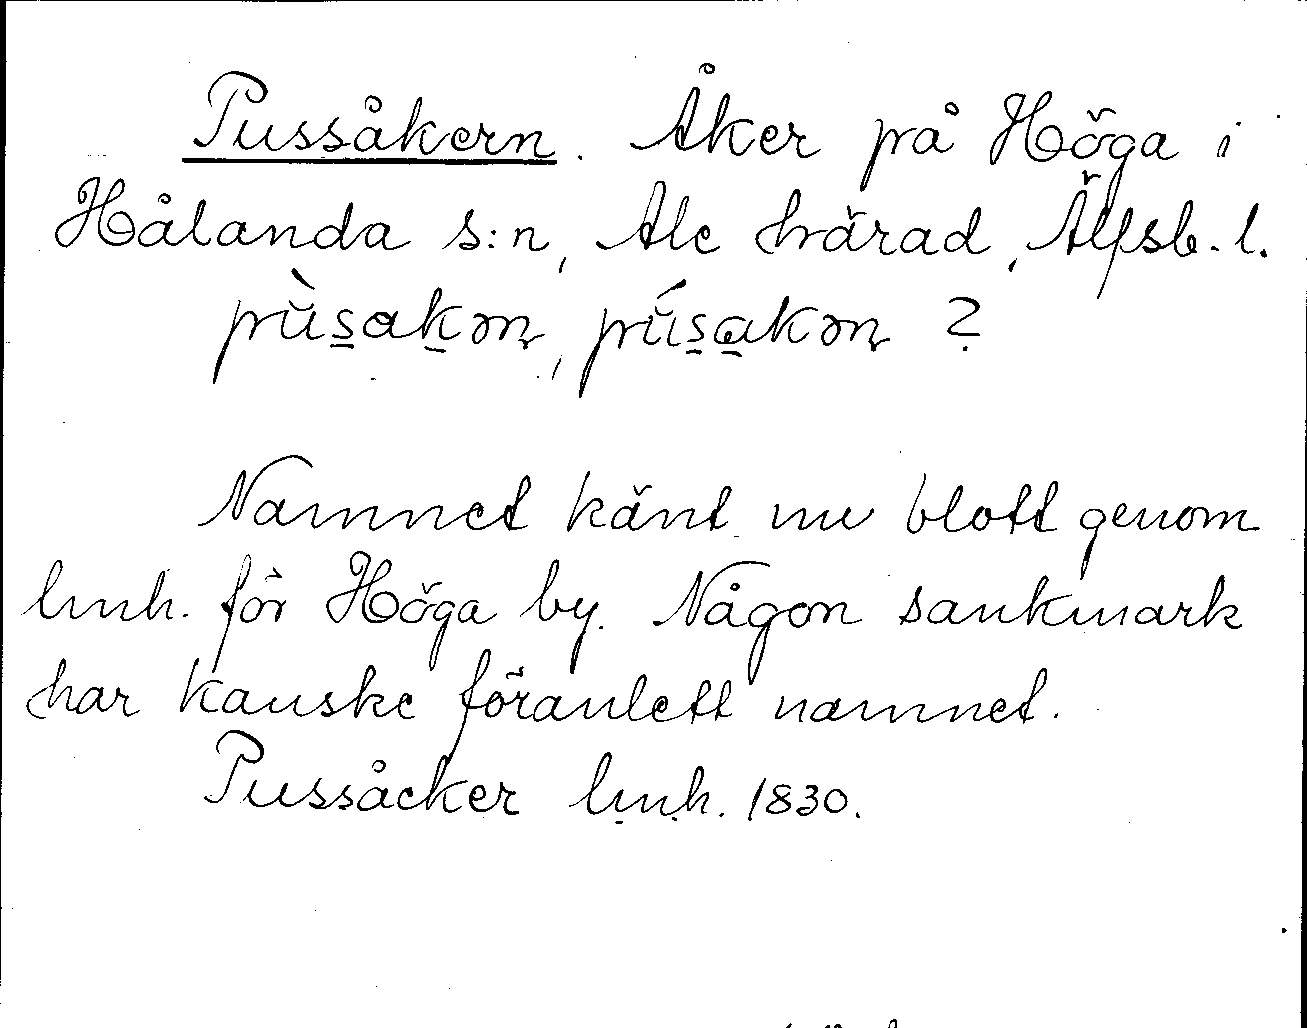 Pussåkern. Åker på Höga i
Hålanda s:n, Ale härad, Älfsb. l.
pùsakən, púsakən ?
Namnet känt nu blott genom
lmh. för Höga by. Någon sankmark
har kanske föranlett namnet.
Pussåcker lmh. 1830.